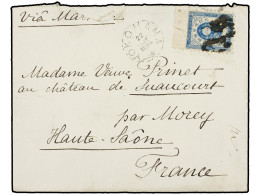 Viâ Mar
Madame Veuve Prinet
au château de Suaucourt
par Morey
Haute-Saône
France